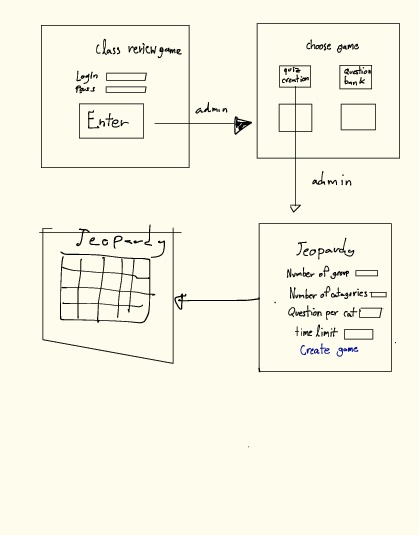 Class review game
Login
Pass
Enter
admin
choose game
quiz
creation
Question
bank
admin
Jeopardy
Jeopardy
Number of group
Number of categories
Question per cat
time limit
Create game